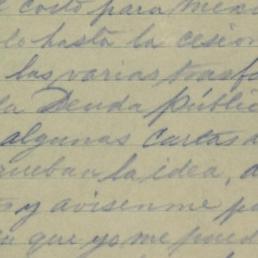 costo para Mexi
hasta la cesion
las varias trasfo
la Deuda Públic
algunas cartas d
rueban la idea, d
y avisenme po
que yo me pued